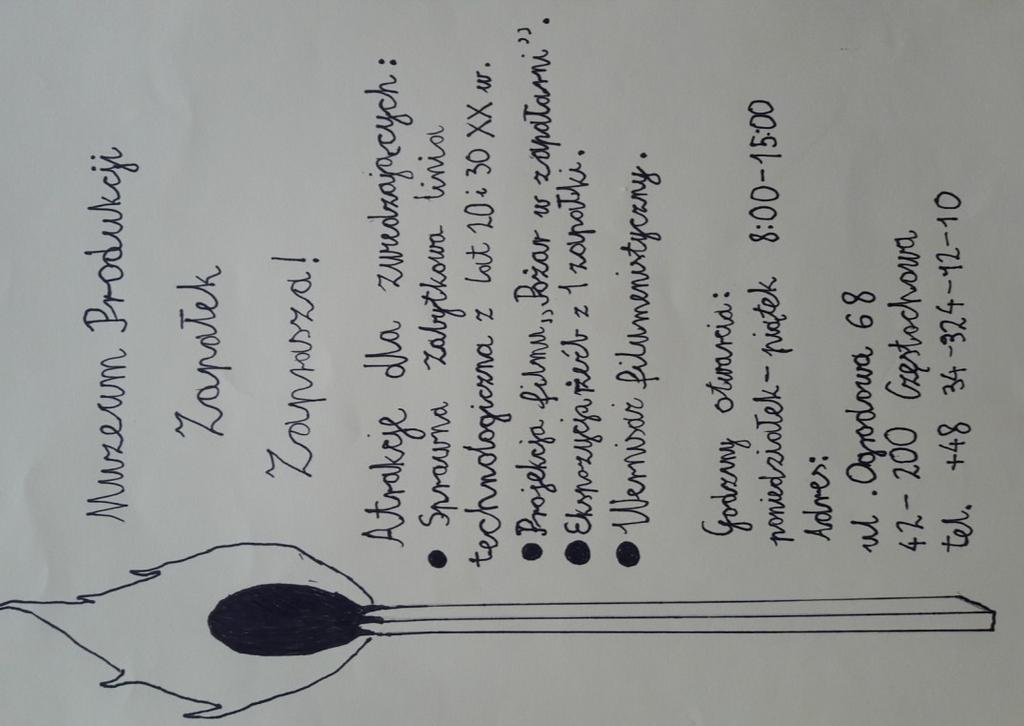 Muzeum Produkcji
Zapałek
Zaprasza!
Atrakcje dla zwiedzających:
• Sprawna zabytkowa linia
technologiczna z lat 20 i 30 XX w.
• Projekcja filmu „Pożar w zapałkarni”.
• Ekspozycja rzeźb z 1 zapałki.
• Wernisaż filumenistyczny.
Godziny otwarcia:
poniedziałek – piątek 8:00-15:00
Adres:
ul. Ogrodowa 68
42-200 Częstochowa
tel. +48 34-324-12-10